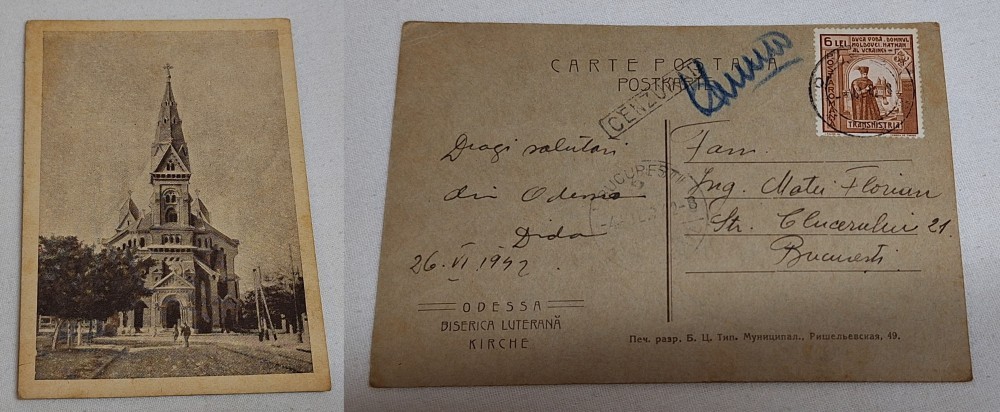 CARTE POSTALA
POSTKARTE
CENZURAT
6 LEI
DUCA VODĂ, DOMNUL
MOLDOVEI, HATMAN
AL UCRAINEI
TRANSNISTRIA
BUCUREȘTI
Dragi salutări
din Odessa
Dida
26.VI 1942
Fam.
Ing. Matei Florian
Str. Clucerului 21.
București
ODESSA
BISERICA LUTERANĂ
KIRCHE
Печ. разр. Б. Ц. Тип. Муниципал., Ришельевская, 49.